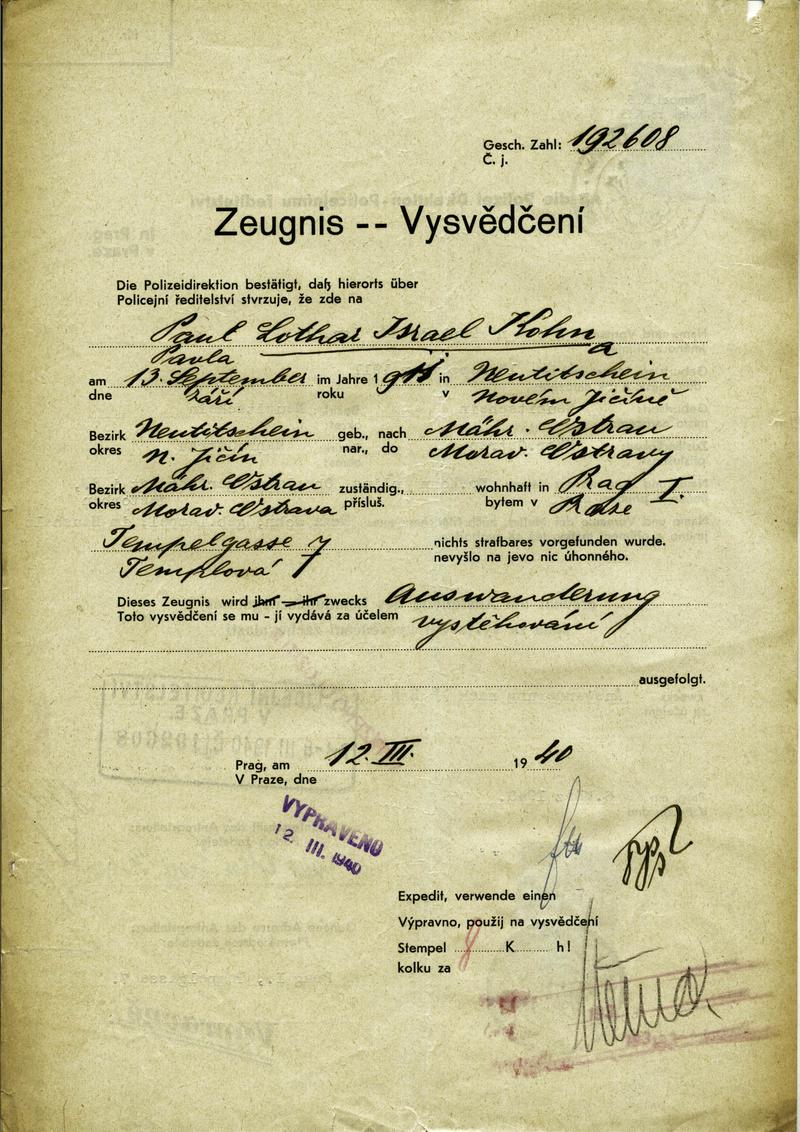 Gesch. Zahl: 192608
Č. j.
Zeugnis -- Vysvědčení
Die Polizeidirektion bestätigt, daß hierorts über
Policejní ředitelství stvrzuje, že zde na
Paul Lothar Israel Kohn
Pavla a
am 13. September im Jahre 1911 in Neutitschein
dne září roku v Novém Jičíně
Bezirk Neutitschein geb., nach Mähr. Ostrau
okres N. Jičín nar., do Morav. Ostravy
Bezirk Mähr. Ostrau zuständig., wohnhaft in Prag I.
okres Morav. Ostrava přísluš. bytem v Praze
Tempelgasse 7 nichts strafbares vorgefunden wurde.
Templová 7 nevyšlo na jevo nic úhonného.
Dieses Zeugnis wird ihm - ihr zwecks Auswanderung
Toto vysvědčení se mu - jí vydává za účelem vystěhování
ausgefolgt.
Prag, am 12. III. 1940
V Praze, dne
VYPRAVENO
12. III. 1940
Expedit, verwende einen
Výpravno, použij na vysvědčení
Stempel 8 K h!
kolku za